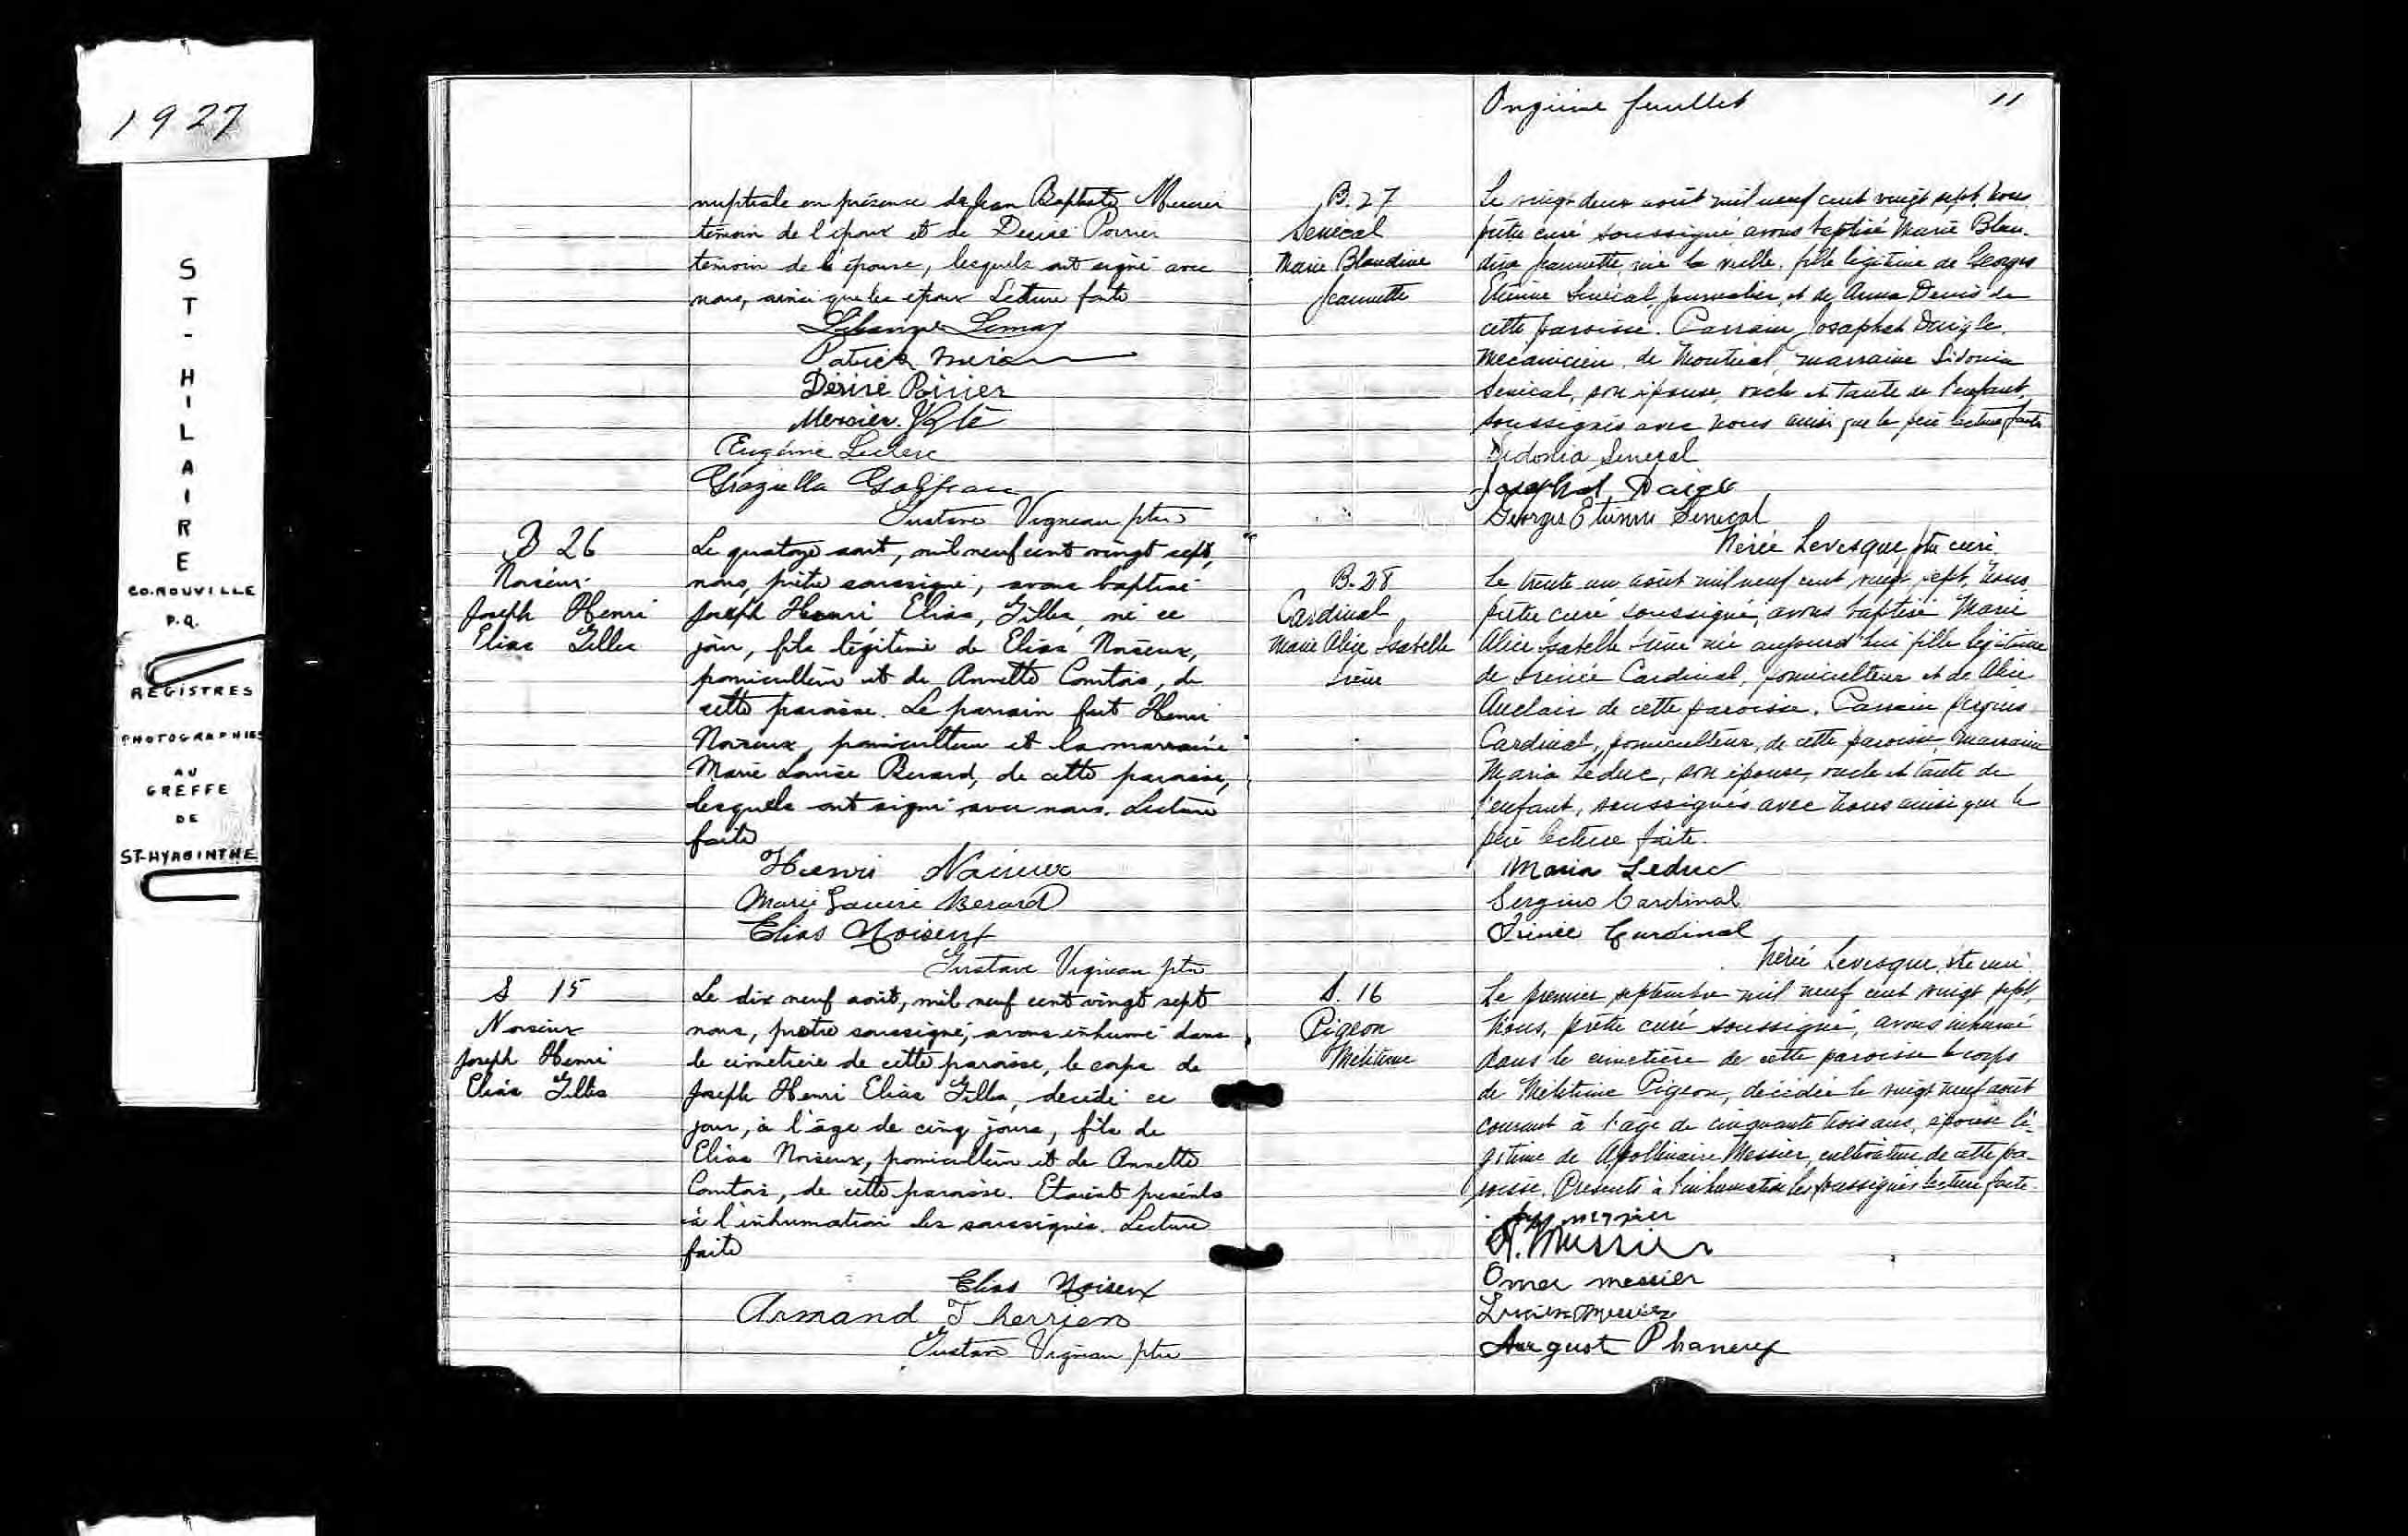 1927
ST-HILAIRE
CO. ROUVILLE
P.Q.
REGISTRES
PHOTOGRAPHIES
AU
GREFFE
DE
ST-HYACINTHE
nuptiale en présence de Jean Baptiste
témoin de l'époux et de Desiré Poirier
témoin de l'épouse, lesquels ont signé avec
nous, ainsi que les époux Lecture faite
Lemay
Patrick
Désiré Poirier
Mercier
Eugénie Leclerc
Graziella
Gustave Vigneau ptre
B 26
Noiseux
Joseph Henri
Elias Gilles
Le quatorze août, mil neuf cent vingt sept,
nous, prêtre soussigné, avons baptisé
Joseph Henri, Elias, Gilles, né ce
jour, fils légitime de Elias Noiseux,
pomiculteur et de Annette Comtois, de
cette paroisse. Le parrain fut Henri
Noiseux, pomiculteur et la marraine
Marie Louise Berard, de cette paroisse,
lesquels ont signé avec nous. Lecture
faite
Henri Noiseux
Marie Louise Berard
Elias Noiseux
Gustave Vigneau ptre
S 15
Noiseux
Joseph Henri
Elias Gilles
Le dix neuf août, mil neuf cent vingt sept
nous, prêtre soussigné, avons inhumé dans
le cimetière de cette paroisse, le corps de
Joseph Henri Elias Gilles, decédé ce
jour, à l'âge de cinq jours, fils de
Elias Noiseux, pomiculteur et de Annette
Comtois, de cette paroisse. Etaient présents
à l'inhumation les soussignés. Lecture
faite
Elias Noiseux
Armand Therrien
Gustave Vigneau ptre
Onzième feuillet 11
B. 27
Senécal
Marie Blandine
Jeannette
Le vingt deux août mil neuf cent vingt sept, nous
prêtre curé soussigné avons baptisé Marie Blan-
dine Jeannette, née la veille, fille légitime de Georges
Etienne Senécal, journalier, et de Anna Denis de
cette paroisse. Parrain Josaphat Daigle,
mecanicien, de Montreal, marraine Sidonia
Senécal, son épouse, oncle et tante de l'enfant,
soussignés avec nous ainsi que le père lecture faite
Sidonia Senecal
Josaphat Daigle
Georges Etienne Senecal
Nérée Levesque, ptre curé
B. 28
Cardinal
Marie Alice Isabelle
Irène
Le trente un août mil neuf cent vingt sept, nous
prêtre curé soussigné, avons baptisé Marie
Alice Isabelle Irène née aujourd'hui fille légitime
de Irénée Cardinal, pomiculteur et de Alice
Auclair de cette paroisse. Parrain Sergius
Cardinal, pomiculteur, de cette paroisse, marraine
Maria Leduc, son épouse, oncle et tante de
l'enfant, soussignés avec nous ainsi que le
père lecture faite.
Maria Leduc
Sergius Cardinal
Irénée Cardinal
Nérée Levesque, ptre curé
S. 16
Pigeon
Mélitine
Le premier septembre mil neuf cent vingt sept,
nous, prêtre curé soussigné, avons inhumé
dans le cimetière de cette paroisse le corps
de Mélitine Pigeon, décédée le vingt neuf août
courant à l'âge de cinquante trois ans, épouse lé-
gitime de Apollinaire Messier, cultivateur de cette pa-
roisse. Presents à l'inhumation les soussignés lecture faite.
messier
A. Messier
Omer messier
Lucien Messier
August Phaneuf